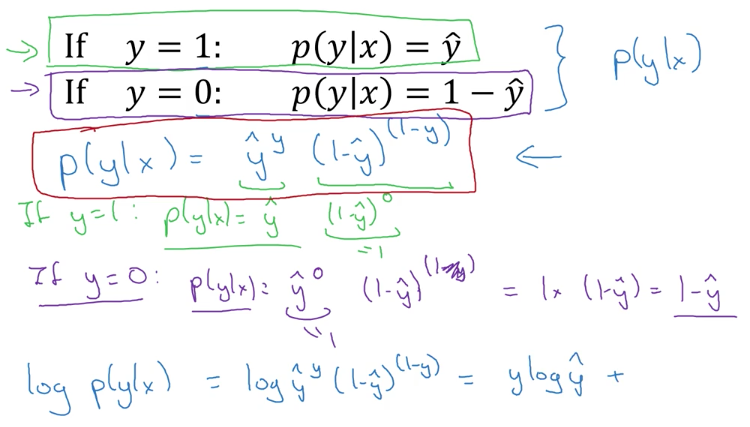 If y = 1: p(y|x) = ŷ
If y = 0: p(y|x) = 1 − ŷ
p(y|x)
p(y|x) = ŷ^y (1-ŷ)^(1-y)
If y=1: p(y|x) = ŷ (1-ŷ)^0
=1
If y=0: p(y|x) = ŷ^0 (1-ŷ)^(1-y) = 1 × (1-ŷ) = 1-ŷ
=1
log p(y|x) = log ŷ^y (1-ŷ)^(1-y) = y log ŷ +